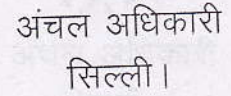 अंचल अधिकारी
सिल्ली।